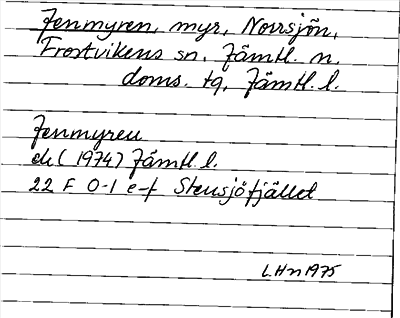 Jenmyren, myr, Norrsjön,
Frostvikens sn. Jämtl. n.
doms. tg, Jämtl. l.
Jenmyren
ek (1974) Jämtl. l.
22 F 0-1 e-f Stensjöfjället
L.Hn 1975